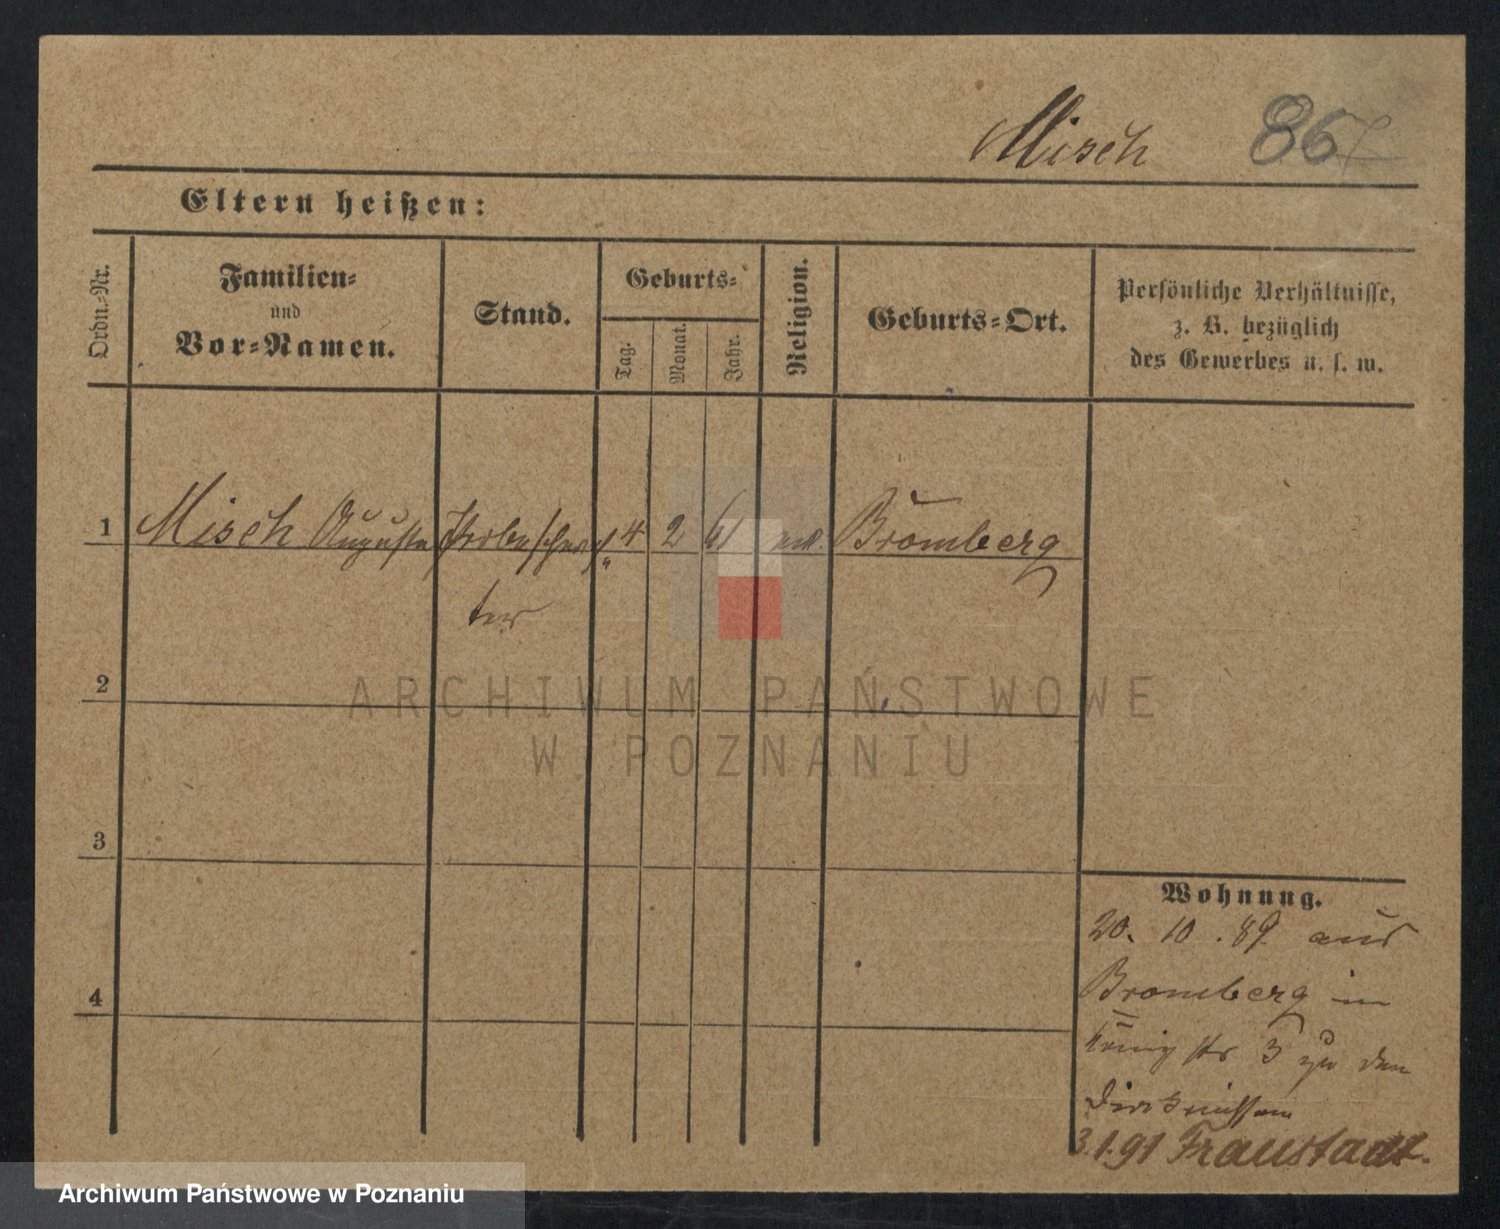 Misch 867
Eltern heißen:
Ordn.-Nr.
Familien-
und
Vor-Namen.
Stand.
Geburts-
Tag.
Monat.
Jahr.
Religion.
Geburts-Ort.
Persönliche Verhältnisse,
z. B. bezüglich
des Gewerbes u. s. w.
1 Misch Auguste Probeschwes 4 2 61 Bromberg
ter
2
3
4
Wohnung.
20. 10. 89 aus
Bromberg in
König str 3 zu den
Diakonissen
3.1.91 Fraustadt.
ARCHIWUM PAŃSTWOWE
W POZNANIU
Archiwum Państwowe w Poznaniu